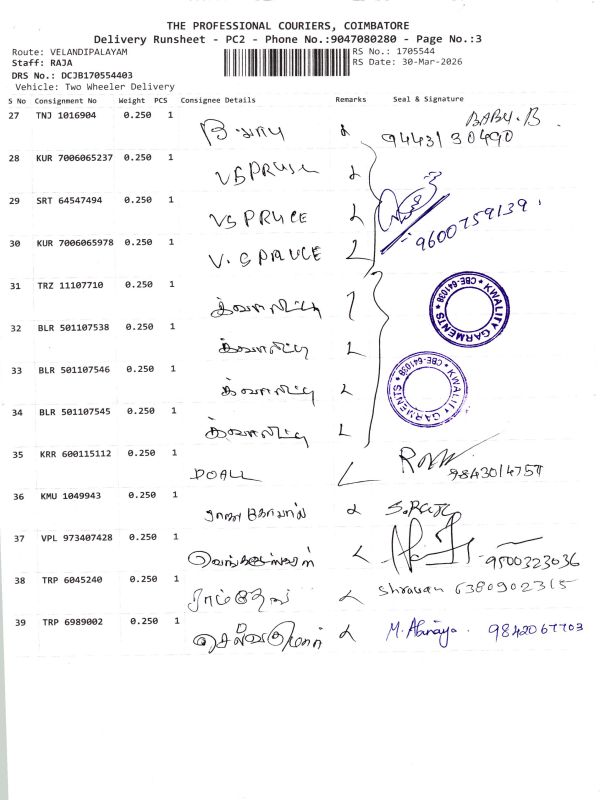 THE PROFESSIONAL COURIERS, COIMBATORE
Delivery Runsheet - PC2 - Phone No.:9047080280 - Page No.:3
Route: VELANDIPALAYAM RS No.: 1705544
Staff: RAJA RS Date: 30-Mar-2026
DRS No.: DCJB170554403
Vehicle: Two Wheeler Delivery
S No Consignment No Weight PCS Consignee Details Remarks Seal & Signature
27 TNJ 1016904 0.250 1 BABY.B
9443130490
28 KUR 7006065237 0.250 1
29 SRT 64547494 0.250 1 VSPRUCE
9600759139
30 KUR 7006065978 0.250 1 V.SPRUCE
31 TRZ 11107710 0.250 1 க்வாலிட்டி
KWALITY GARMENTS * CBE-641038 *
32 BLR 501107538 0.250 1 க்வாலிட்டி
33 BLR 501107546 0.250 1 க்வாலிட்டி
KWALITY GARMENTS * CBE-641038 *
34 BLR 501107545 0.250 1 க்வாலிட்டி
35 KRR 600115112 0.250 1 DOALL
36 KMU 1049943 0.250 1 ராஜகோபால்
37 VPL 973407428 0.250 1 வெங்கடேஸ்வரன் 9500323036
38 TRP 6045240 0.250 1 Shravan 6380902315
39 TRP 6989002 0.250 1 செல்வகுமார் M. Abinaya. 9842067703